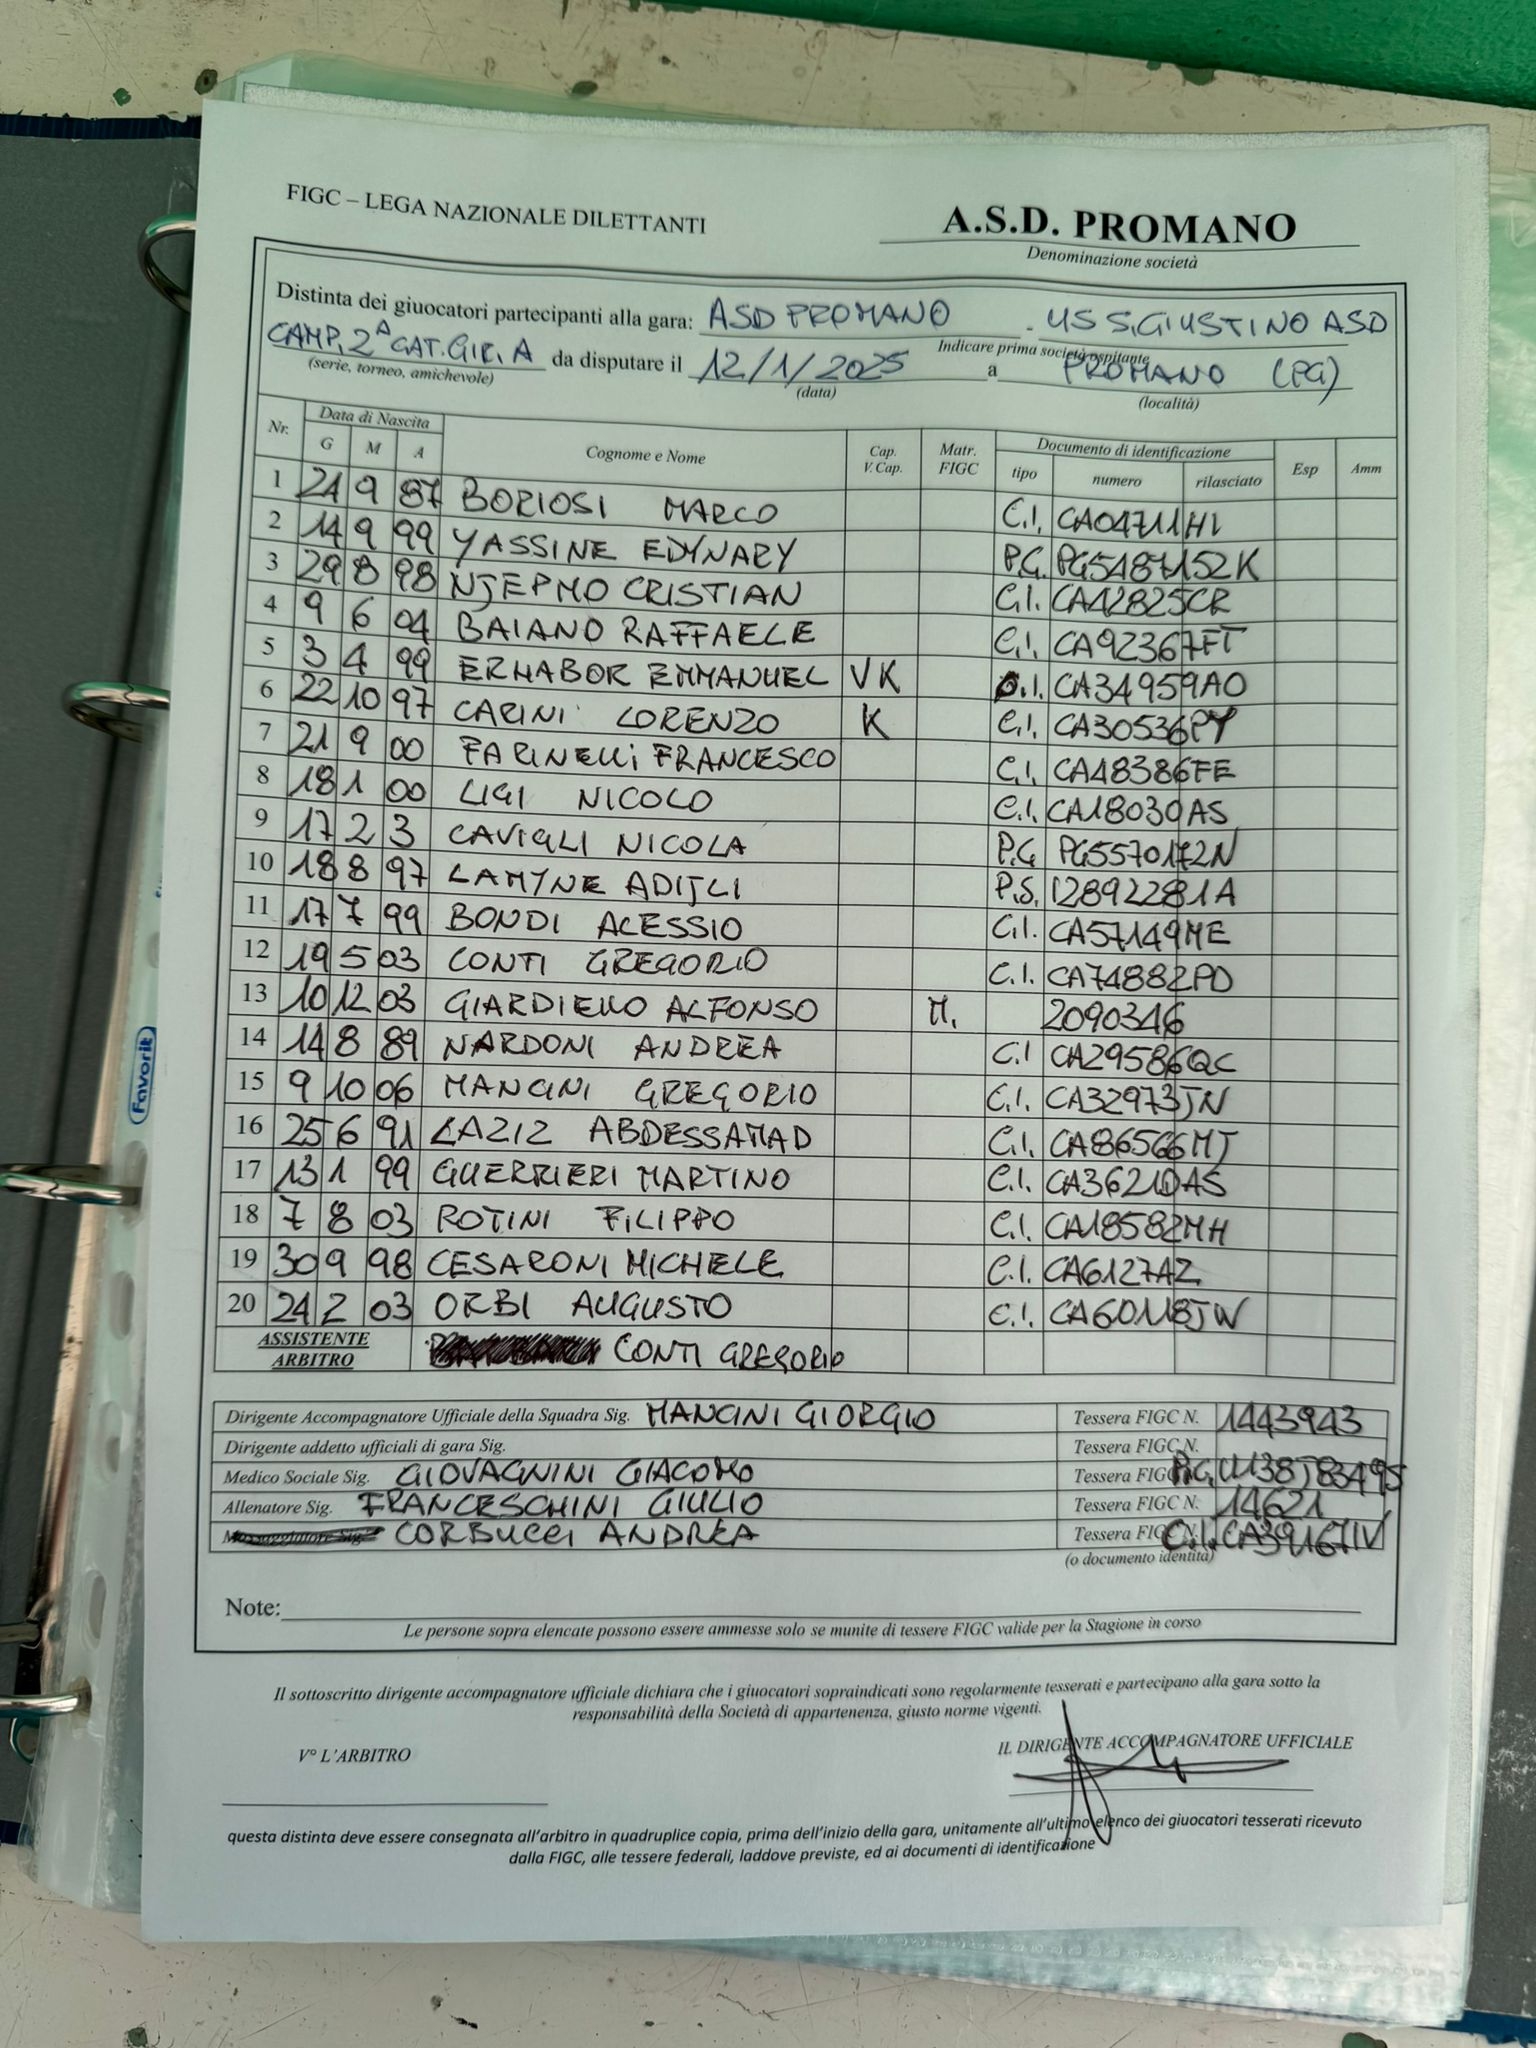 FIGC – LEGA NAZIONALE DILETTANTI
A.S.D. PROMANO
Denominazione società
Distinta dei giuocatori partecipanti alla gara: ASD PROMANO - US S.GIUSTINO ASD
Indicare prima società ospitante
CAMP. 2ᴬ CAT. GIR. A da disputare il 12/1/2025 a PROMANO (PG)
(serie, torneo, amichevole) (data) (località)
Nr. Data di Nascita Cognome e Nome Cap. V. Cap. Matr. FIGC Documento di identificazione Esp Amm
G M A tipo numero rilasciato
1 24 9 87 BORIOSI MARCO C.I. CA04711HI
2 14 9 99 YASSINE EDYNARY P.G. PG5487152K
3 29 8 98 NJEPMO CRISTIAN C.I. CA42825CR
4 9 6 04 BAIANO RAFFAELE C.I. CA92367FT
5 3 4 99 ERHABOR EMMANUEL VK C.I. CA34959AO
6 22 10 97 CARINI LORENZO K C.I. CA30536PY
7 21 9 00 FARINELLI FRANCESCO C.I. CA48386FE
8 18 1 00 LIGI NICOLO C.I. CA18030AS
9 17 2 3 CAVIGLI NICOLA P.G. PG5570172N
10 18 8 97 LAMYNE ADIJLI P.S. 12892281A
11 17 7 99 BONDI ALESSIO C.I. CA57149ME
12 19 5 03 CONTI GREGORIO C.I. CA74882PD
13 10 12 03 GIARDIELLO ALFONSO M. 2090346
14 14 8 89 NARDONI ANDREA C.I CA29586QC
15 9 10 06 MANCINI GREGORIO C.I. CA32973JN
16 25 6 91 LAZIZ ABDESSAMAD C.I. CA86566MJ
17 13 1 99 GUERRIERI MARTINO C.I. CA36210AS
18 7 8 03 ROTINI FILIPPO C.I. CA18582MH
19 30 9 98 CESARONI MICHELE C.I. CA6127AZ
20 24 2 03 ORBI AUGUSTO C.I. CA60118JW
ASSISTENTE ARBITRO CONTI GREGORIO
Dirigente Accompagnatore Ufficiale della Squadra Sig. MANCINI GIORGIO Tessera FIGC N. 1443943
Dirigente addetto ufficiali di gara Sig. Tessera FIGC N.
Medico Sociale Sig. GIOVAGNINI GIACOMO Tessera FIGC P.G. U138J8349S
Allenatore Sig. FRANCESCHINI GIULIO Tessera FIGC N. 14621
Massaggiatore Sig. CORBUCCI ANDREA Tessera FIGC N. C.I. CA39167IV
(o documento identità)
Note:
Le persone sopra elencate possono essere ammesse solo se munite di tessere FIGC valide per la Stagione in corso
Il sottoscritto dirigente accompagnatore ufficiale dichiara che i giuocatori sopraindicati sono regolarmente tesserati e partecipano alla gara sotto la
responsabilità della Società di appartenenza, giusto norme vigenti.
V° L'ARBITRO IL DIRIGENTE ACCOMPAGNATORE UFFICIALE
questa distinta deve essere consegnata all'arbitro in quadruplice copia, prima dell'inizio della gara, unitamente all'ultimo elenco dei giuocatori tesserati ricevuto
dalla FIGC, alle tessere federali, laddove previste, ed ai documenti di identificazione
Favorit